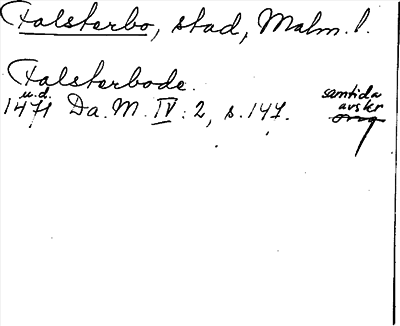 Falsterbo, stad, Malm. l.
Falsterbode.
u.d.
1471 Da. M. IV: 2, s. 147.
samtida
avskr
orig